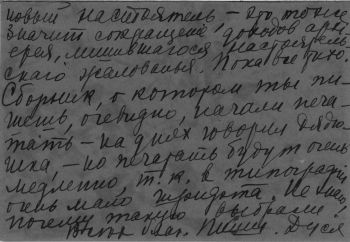 новый настоятель – это тоже
значит сокращение доходов архи-
ерея, лишившегося настоятель-
скаго жалованья. Пока все тихо.
Сборник, о котором ты пи-
шешь, очевидно, начали печа-
тать, – на днях говорил дядю-
шка, – но печатать будут очень
медленно, т. к. в типографии
очень мало шрифта. Не знаю,
почему такую выбрали!
Пиши. Дуся